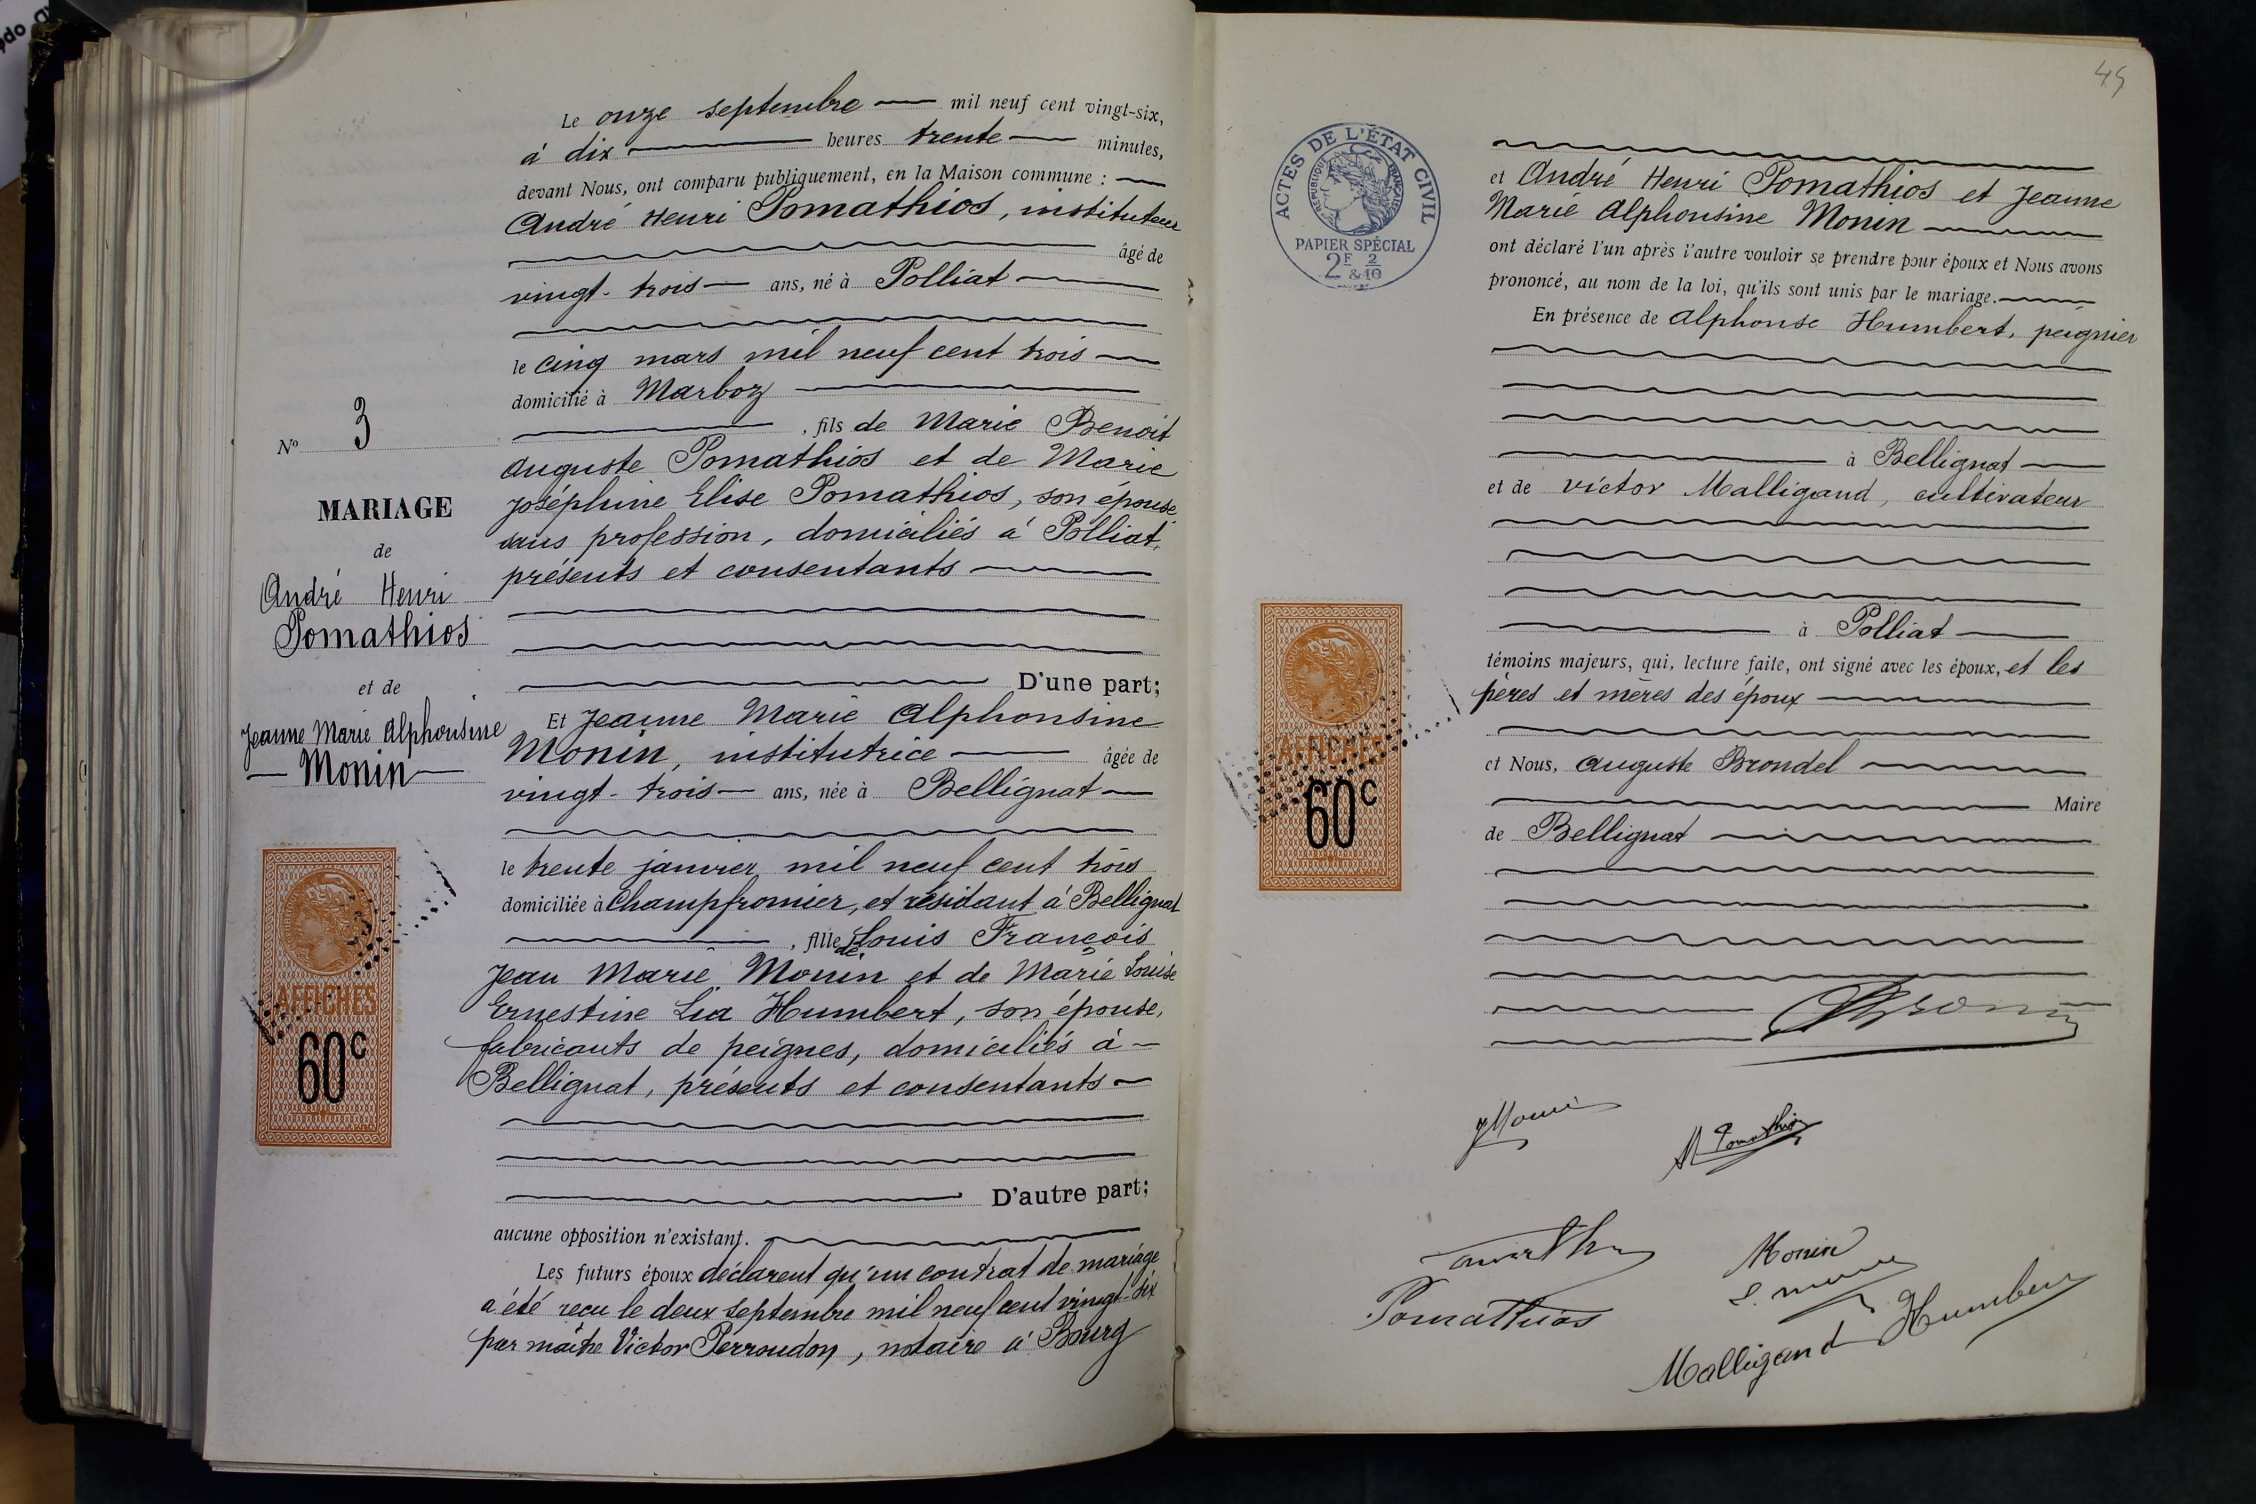 Nº 3
MARIAGE
de
André Henri
Pomathios
et de
Jeanne Marie Alphonsine
Monin
AFFICHES
60c
Le onze septembre mil neuf cent vingt-six,
à dix heures trente minutes,
devant Nous, ont comparu publiquement, en la Maison commune :
André Henri Pomathios, instituteur
âgé de
vingt-trois ans, né à Polliat
le cinq mars mil neuf cent trois
domicilié à Marboz
, fils de Marie Benoit
Auguste Pomathios et de Marie
Joséphine Elise Pomathios, son épouse,
sans profession, domiciliés à Polliat,
présents et consentants
D'une part;
Et Jeanne Marie Alphonsine
Monin, institutrice âgée de
vingt-trois ans, née à Bellignat
le trente janvier mil neuf cent trois
domiciliée à Champfromier, et résidant à Bellignat
, fille de Louis François
Jean Marie Monin et de Marie Louise
Ernestine Lia Humbert, son épouse,
fabricants de peignes, domiciliés à
Bellignat, présents et consentants
D'autre part;
aucune opposition n'existant.
Les futurs époux déclarent qu'un contrat de mariage
a été reçu le deux septembre mil neuf cent vingt-six
par maître Victor Perroudon, notaire à Bourg
45
ACTES DE L'ÉTAT CIVIL
RÉPUBLIQUE FRANÇAISE
PAPIER SPÉCIAL
2F & 2/10
AFFICHES
60c
et André Henri Pomathios et Jeanne
Marie Alphonsine Monin
ont déclaré l'un après l'autre vouloir se prendre pour époux et Nous avons
prononcé, au nom de la loi, qu'ils sont unis par le mariage.
En présence de Alphonse Humbert, peignier
à Bellignat
et de Victor Malligand, cultivateur
à Polliat
témoins majeurs, qui, lecture faite, ont signé avec les époux, et les
pères et mères des époux
et Nous, Auguste Brondel
Maire
de Bellignat
JMonin
Pomathios
Pomathios
Monin
Humbert
Malligand